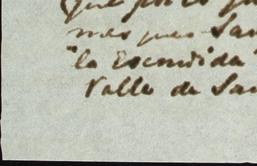 que por es
mes pues San
"la Escondida"
Valle de San